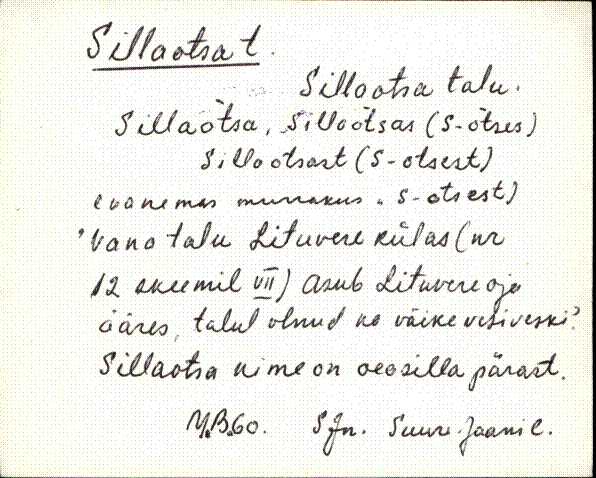 Sillaotsa t.
Sillaotsa talu.
Sillaotsa, Sillaõtsas (S-õtses)
Sillaotsast (S-otsest)
(vanemas murrakus " S-otsest)
Vana talu Lituvere külas (nr
12 skeemil VII) Asub Lituvere oja
ääres, talul olnud ka väike vesiveski.
Sillaotsa nime on oeosilla pärast.
M.B.60. SJn. Suure-Jaani l.